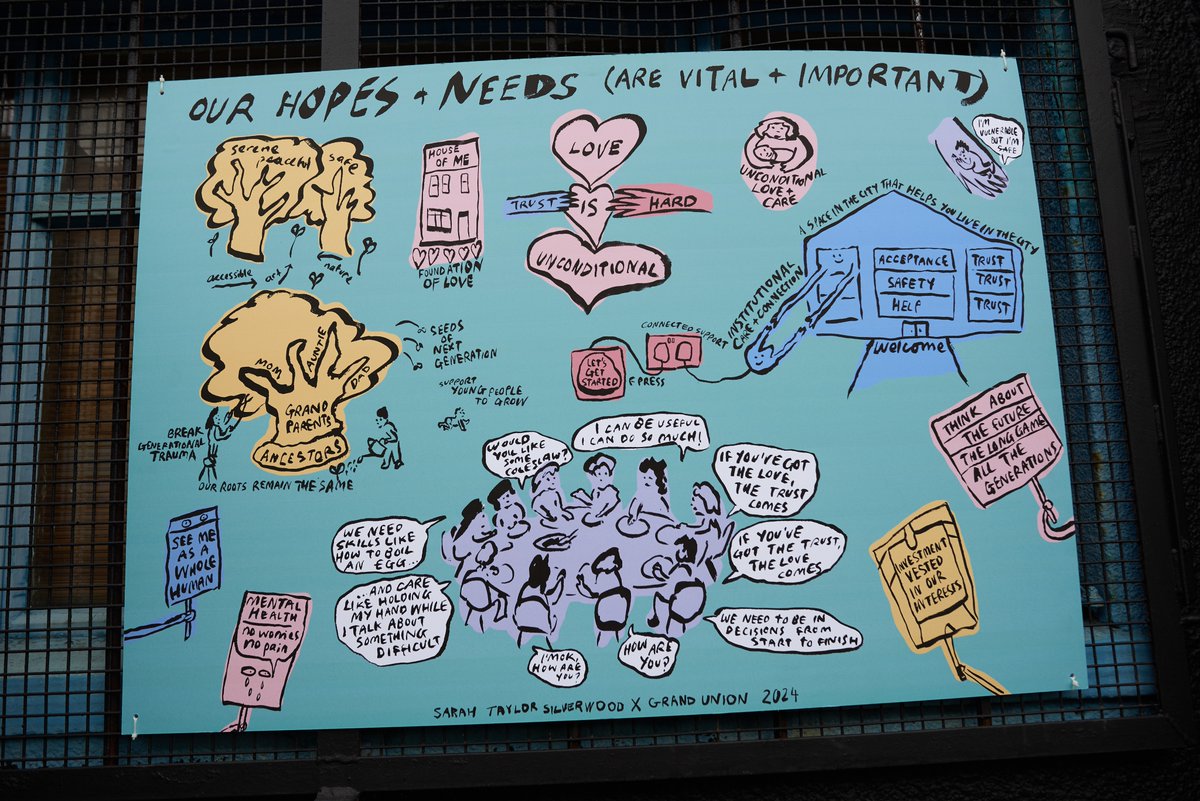 OUR HOPES + NEEDS (ARE VITAL + IMPORTANT)
serene
peaceful
safe
accessible
art
nature
HOUSE
OF ME
FOUNDATION
OF LOVE
LOVE
TRUST
IS
HARD
UNCONDITIONAL
UNCONDITIONAL
LOVE +
CARE
I'M
VULNERABLE
BUT I'M
SAFE
A SPACE IN THE CITY THAT HELPS YOU LIVE IN THE CITY
ACCEPTANCE
SAFETY
HELP
TRUST
TRUST
TRUST
Welcome
INSTITUTIONAL
CARE + CONNECTION
CONNECTED SUPPORT
LET'S
GET
STARTED
PRESS
MOM
AUNTIE
DAD
GRAND
PARENTS
ANCESTORS
SEEDS
OF
NEXT
GENERATION
SUPPORT
YOUNG PEOPLE
TO GROW
BREAK
GENERATIONAL
TRAUMA
OUR ROOTS REMAIN THE SAME
THINK ABOUT
THE FUTURE
THE LONG GAME
ALL THE
GENERATIONS
WOULD
YOU LIKE
SOME
COLESLAW?
I CAN BE USEFUL
I CAN DO SO MUCH!
IF YOU'VE GOT
THE LOVE,
THE TRUST
COMES
IF YOU'VE
GOT THE TRUST,
THE LOVE
COMES
WE NEED
SKILLS LIKE
HOW TO BOIL
AN EGG...
...AND CARE
LIKE HOLDING
MY HAND WHILE
I TALK ABOUT
SOMETHING
DIFFICULT
I'M OK,
HOW ARE
YOU?
HOW ARE
YOU?
WE NEED TO BE IN
DECISIONS FROM
START TO FINISH
SEE ME
AS A
WHOLE
HUMAN
MENTAL
HEALTH
no worries
no pain
INVESTMENT
VESTED
IN OUR
INTERESTS
SARAH TAYLOR SILVERWOOD X GRAND UNION 2024